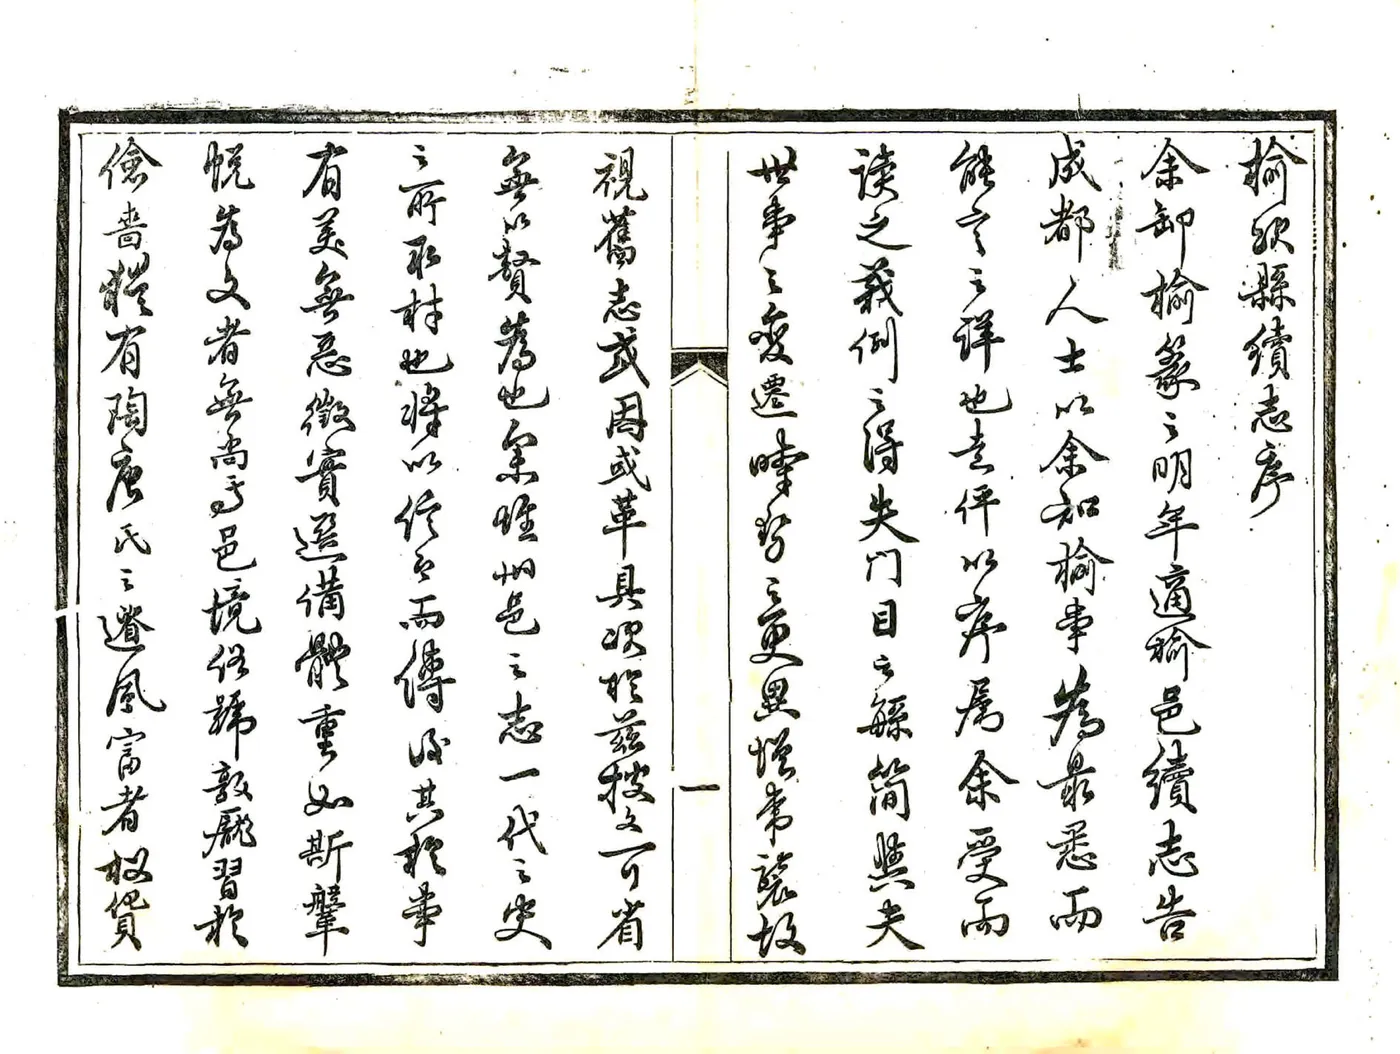 榆次縣續志序
余卸榆篆之明年適榆邑續志告
成都人士以余知榆事為最悉而
能言之詳也走伻以序屬余受而
讀之義例之得失門目之繇簡與夫
世事之變遷時勢之更異增常襲故
視舊志或因或革具次於茲披文可省
無以贅為也余惟州邑之志一代之史
之所取材也將以信今而傳後其於事
有美無惡徵實選備體重如斯鞶
帨為文者無尚焉邑境俗號敦龐習於
儉嗇猶有陶唐氏之遺風富者拔貲